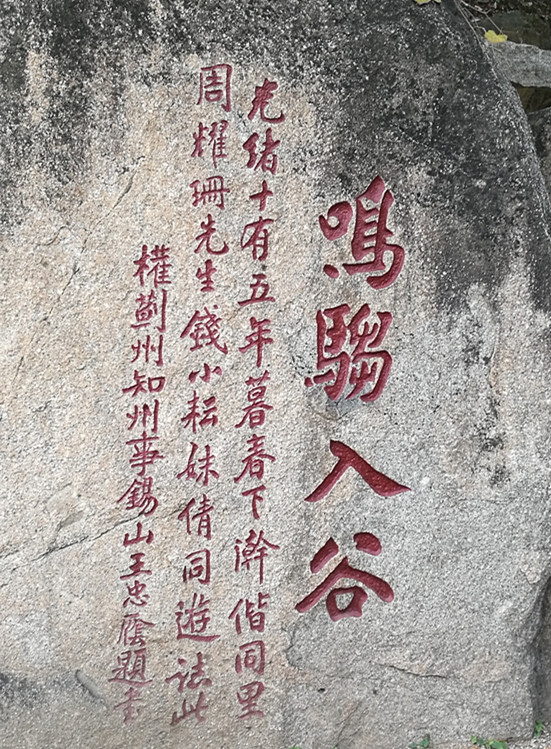 鳴騶入谷
光緒十有五年暮春下澣偕同里
周耀珊先生錢小耘妹倩同遊誌此
權薊州知州事錫山王忠蔭題書